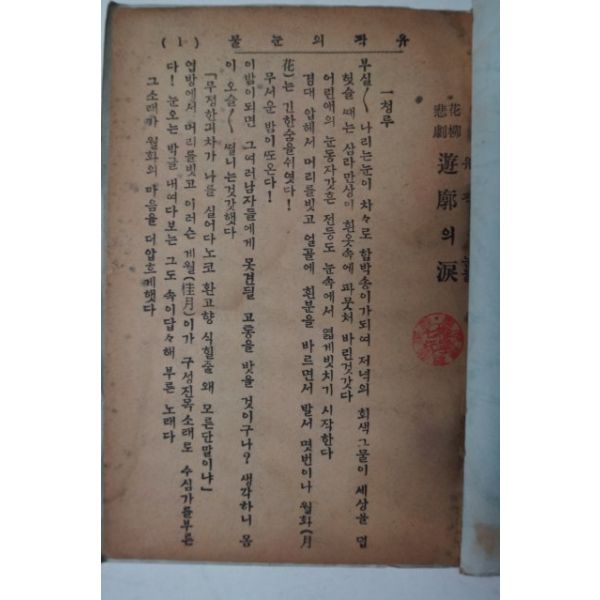 ( 1 ) 물눈의곽유
花柳
悲劇
遊廓의淚
一청루
부실〱 나리는눈이 차々로 함박송이가되여 저녁의 회색그물이 세상을 덥
헛슬 때는 삼라만상이 흰옷속에 파뭇처 바린것갓다
어린애의 눈동자갓흔 전등도 눈속에서 엷게빗치기 시작한다
경대 압헤서 머리를빗고 얼골에 흰분을 바르면서 발서 몃번이나 월화(月
花)는 긴한숨을쉬엿다!
무서운 밤이또온다!
이밤이되면 그여러남자들에게 못견될 고통을 밧을 것이구나? 생각하니 몸
이 오슬〱 떨니는것갓햇다
「무정한긔차가 나를 실어다노코 환고향 식힐줄 왜 모른단말이냐」
엽방에서 머리를빗고 이러슨 계월(桂月)이가 구성진목소래로 수심가를부른
다! 눈오는 박글 내여다보는 그도 속이답々해 부른 노래다
그소래가 월화의 마음을 더압흐게햇다